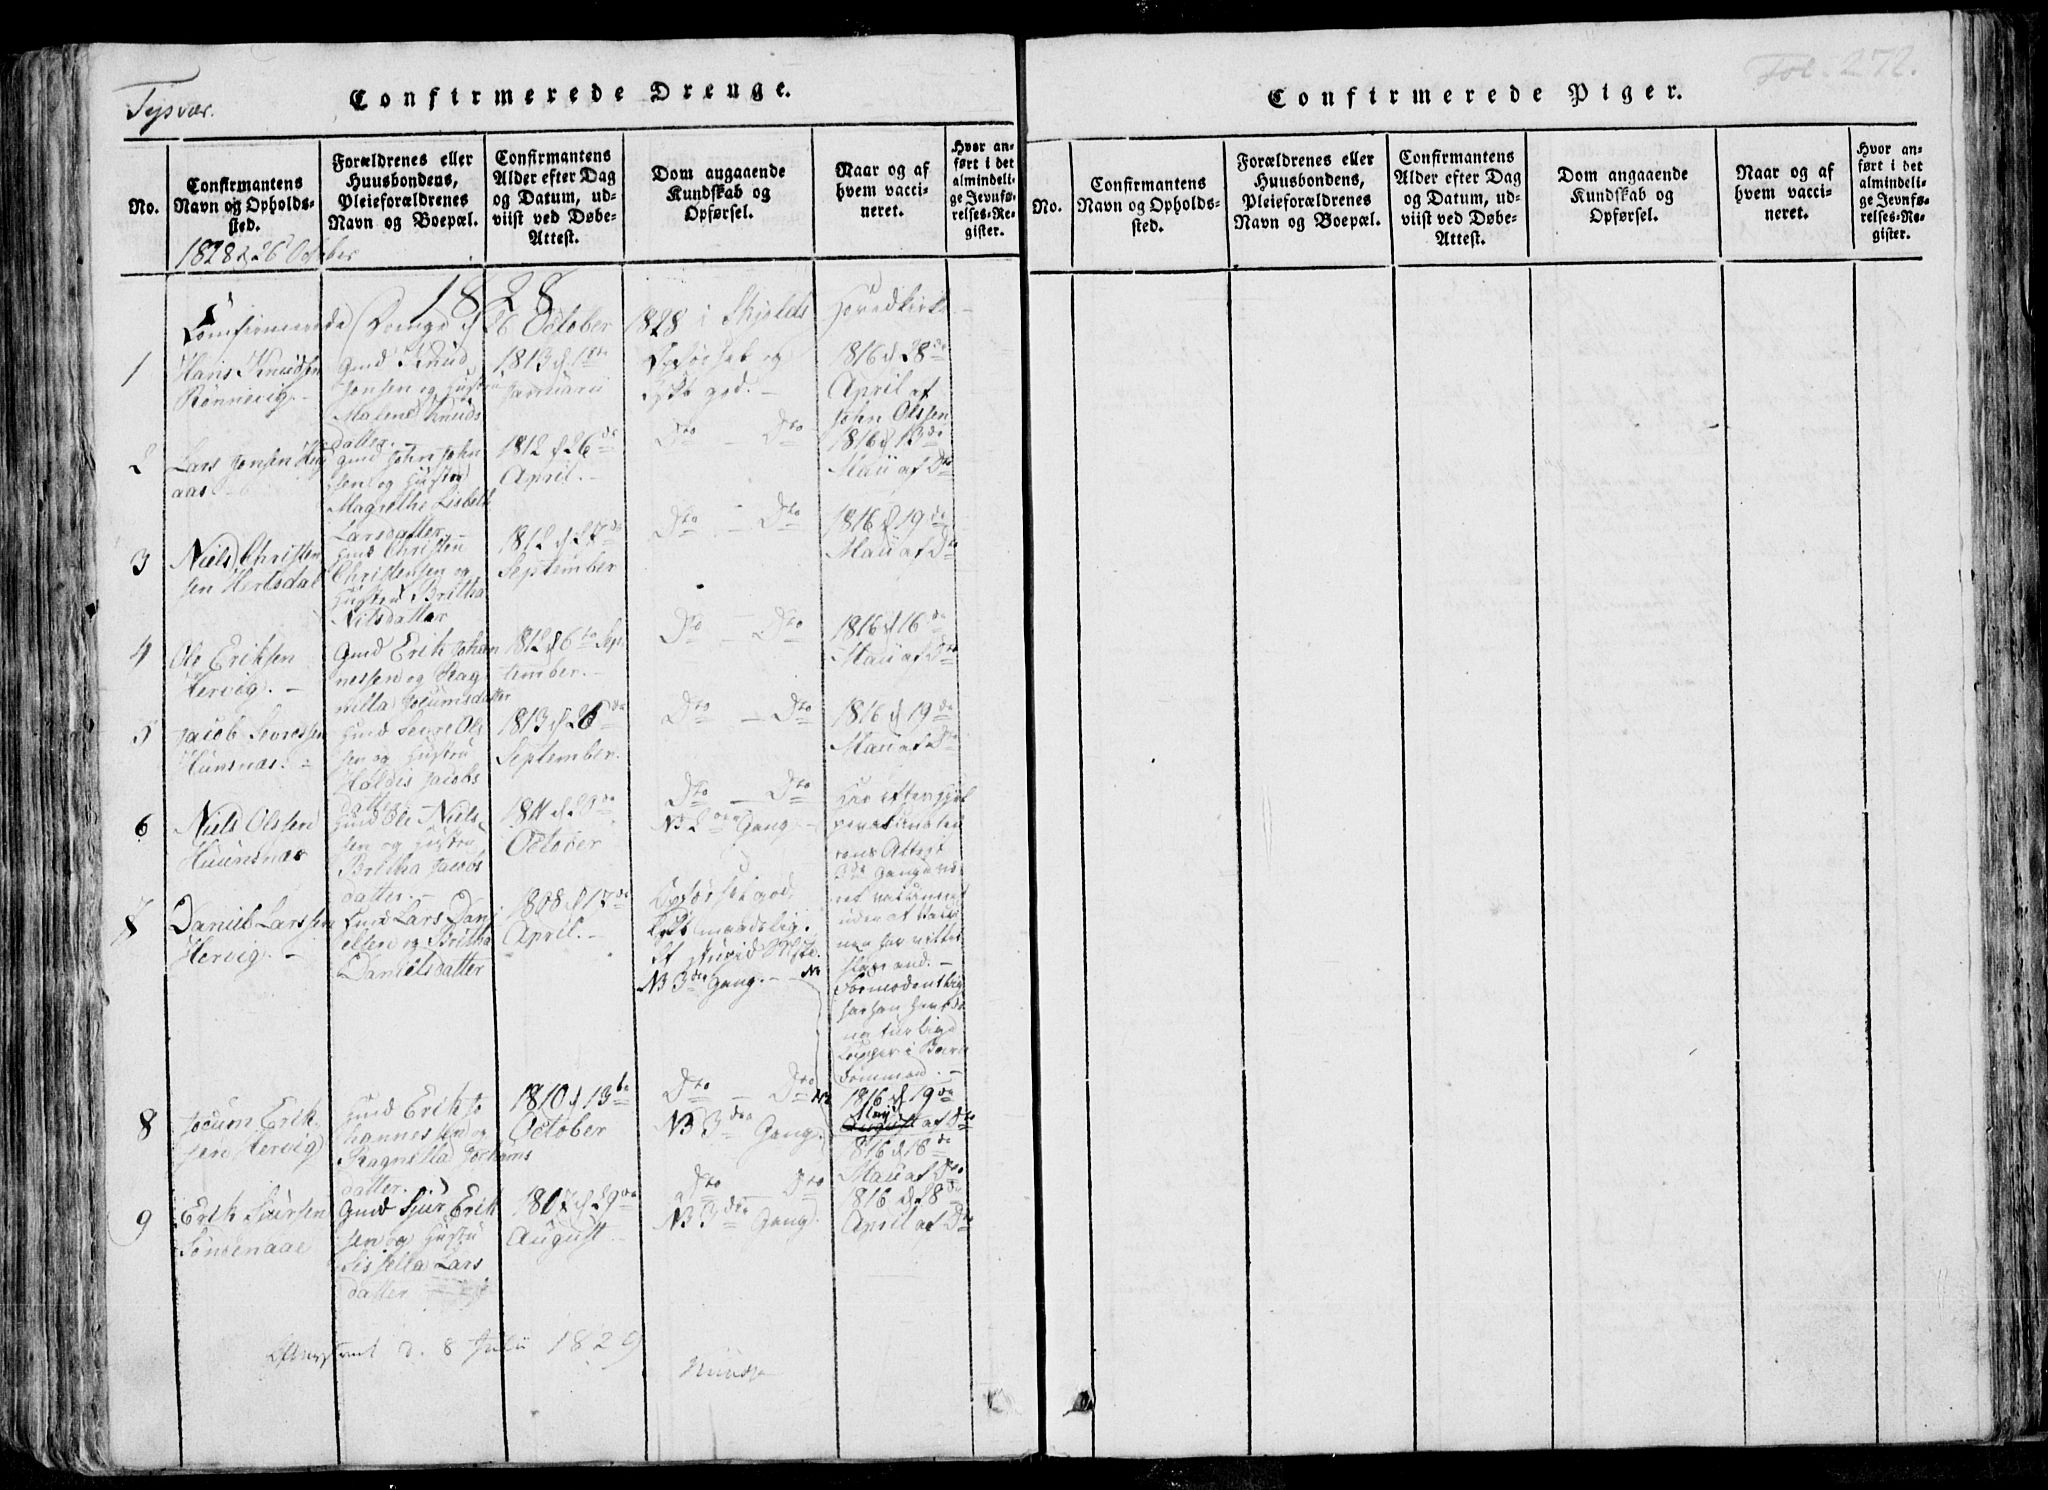 Tysvær.
Confirmerede Drenge.
No.
Confirmantens
Navn og Opholds-
sted.
Forældrenes eller
Huusbondens,
Pleieforældrenes
Navn og Boepæl.
Confirmantens
Alder efter Dag
og Datum, ud-
viist ved Døbe-
Attest.
Dom angaaende
Kundskab og
Opførsel.
Naar og af
hvem vacci-
neret.
Hvor an-
ført i det
almindeli-
ge Jevnfø-
relses-Re-
gister.
1828 d 26 October
1828
Confirmerede Drenge d 26 October 1828 i Skjolds Hovedkirke
1
Hans Knudsen
Rønnevig.
Gmd Knud
Jonsen og Hustru
Malene Knuds
datter.
1813 d 1de
Januarii
Opførsel og
god.
1816 d 28de
April af
John Olssen
2
Lars Jonsen
aas
Gmd John John
sen og Hustru
Magrethe Lisbeth
Larsdatter
1812 d 26de
April.
Dto - Dto
1816 d 13de
Maii af Dto
3
Niels Christen
sen Hertsdal
Gmd Christen
Christensen og
Hustru Britha
Nilsdatter
1812 d 27de
September
Dto - Dto
1816 d 19de
Maii af Dto
4
Ole Eriksen
Hervig.
Gmd Erik Johan
nessen og Rag
nilla Jocumsdatter
1812 d 6te Sep
tember.
Dto - Dto
1816 d 16de
Maii af Dto
5
Jacob Sevressen
Huusnæs.
Huusmd Sevre Ols
sen og Hustru
Holdis Jacobs
datter
1813 d 26de
September.
Dto - Dto
1816 d 19de
Maii af Dto
6
Niels Olssen
Huusnæs
Gmd Ole Niels
sen og Hustru
Britha Jacobs
datter.
1811 d 23de
October
Dto - Dto
NB 2den Gang
Har efter
Attest
3de Gange
uden at
7
Daniel Larssen
Hervig.
Lars Dani
elsen og Britha
Danielsdatter
1808 d 17de
April.
Opførsel god,
maadelig.
NB 3die Gang. - NB
Formodentlig
har han havt de
naturlige
Kopper i Barn
dommen.
8
Jocum Erik
sen Hervig
Gmd Erik Jo
hannessen og
Ragnilla Jochums
datter.
1810 d 13de
October
Dto - Dto NB
NB 3die Gang.
1816 d 19de
Maij
August af Dto
1816 d 18de
Maii af Dto
9
Erik Sjursen
Søndenaae
Gmd Sjur Erik
sen og Hustru
Sissella Lars
datter
1807 d 29de
August
Dto Dto
NB 3die Gang.
1816 d 28de
April af Dto
d. 8 Julii 1829
Confirmerede Piger.
Fol. 272.
No.
Confirmantens
Navn og Opholds-
sted.
Forældrenes eller
Huusbondens,
Pleieforældrenes
Navn og Boepæl.
Confirmantens
Alder efter Dag
og Datum, ud-
viist ved Døbe-
Attest.
Dom angaaende
Kundskab og
Opførsel.
Naar og af
hvem vacci-
neret.
Hvor an-
ført i det
almindeli-
ge Jevnfø-
relses-Re-
gister.